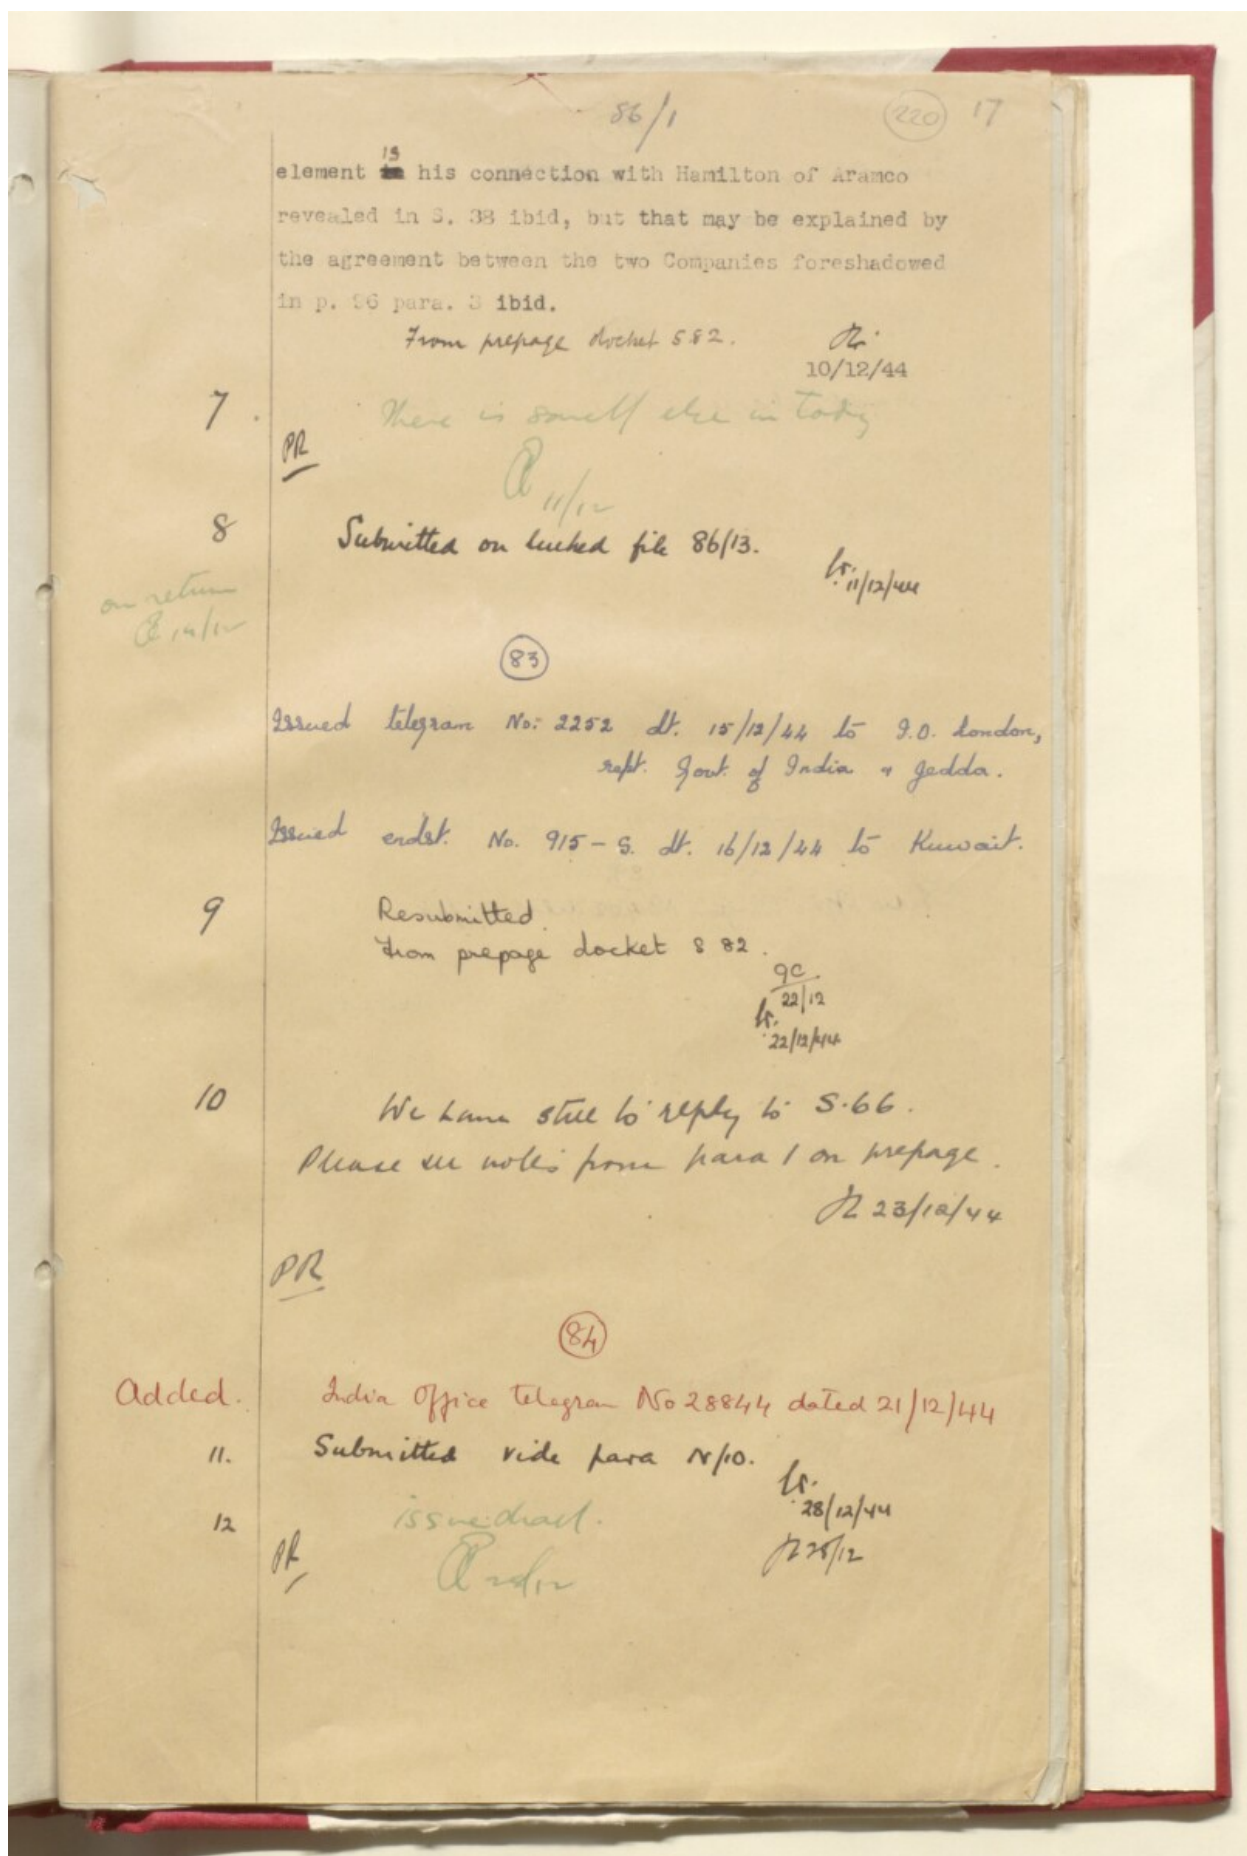 86/1
220 17
element is his connection with Hamilton of Aramco
revealed in S. 38 ibid, but that may be explained by
the agreement between the two Companies foreshadowed
in p. 96 para. 3 ibid.
From prepage docket S 82.
10/12/44
7.
There is else in today
PR
11/12
8
Submitted on linked file 86/13.
11/12/44
on return
14/12
83
Issued telegram No: 2252 dt. 15/12/44 to I.O. London,
rept. Govt. of India & Jedda.
Issued endst. No. 915-S. dt. 16/12/44 to Kuwait.
9
Resubmitted.
From prepage docket S 82.
22/12
22/12/44
10
We have still to reply to S.66.
Please see notes from para 1 on prepage.
23/12/44
PR
84
Added.
India Office telegram No 28844 dated 21/12/44
11.
Submitted vide para N/10.
28/12/44
12
issue draft.
28/12
PR